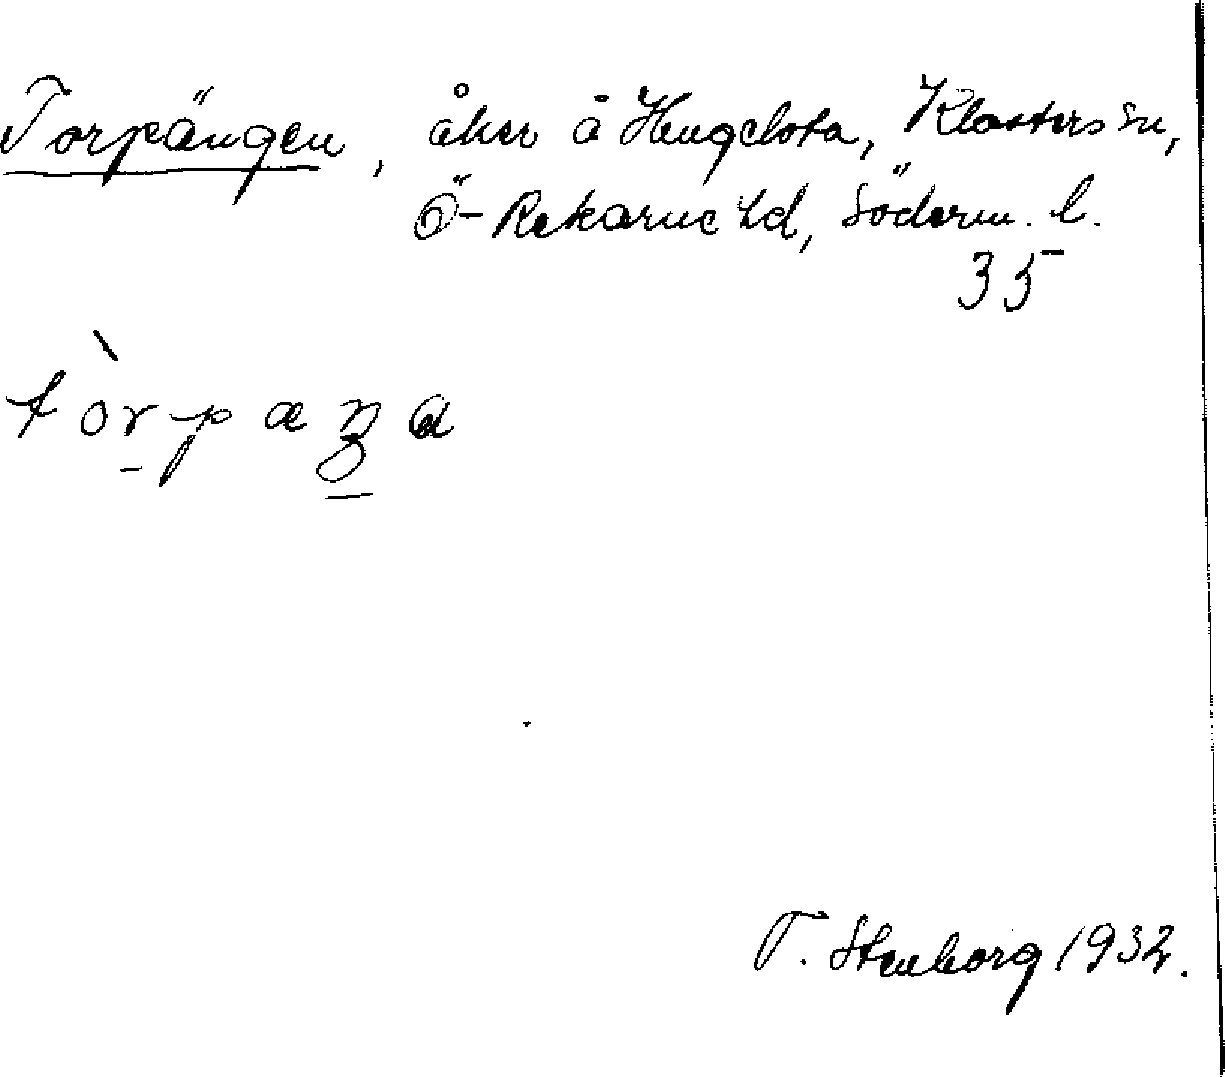 Torpängen, åker å Hengelota, Klosters sn,
Ö-Rekarne hd, Söderm. l.
35
T. Stenborg 1932.